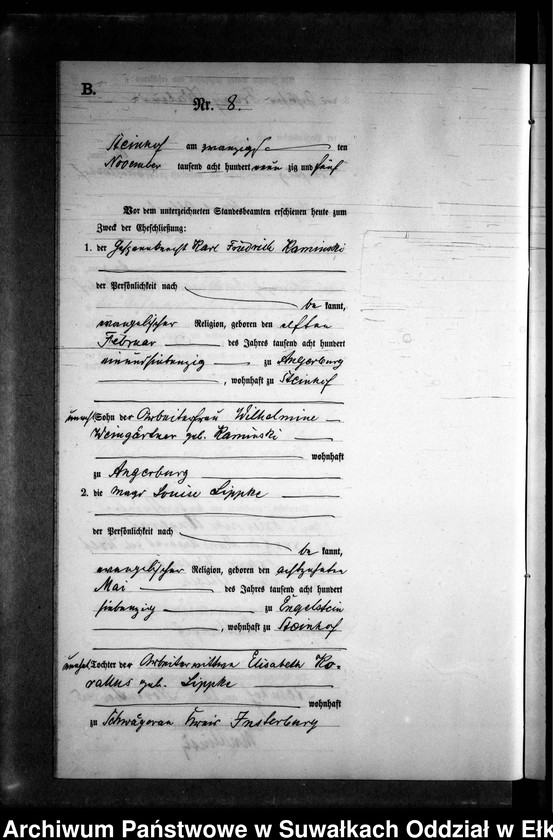 B.
Nr. 8.
Steinhof am zwanzigs ten
November tausend acht hundert neun zig und fünf
Vor dem unterzeichneten Standesbeamten erschienen heute zum
Zweck der Eheschließung:
1. der Gespannknecht Karl Friedrich Kaminski
der Persönlichkeit nach
be kannt,
evangelischer Religion, geboren den elften
Februar des Jahres tausend acht hundert
einundsiebenzig zu Angerburg
, wohnhaft zu Steinhof
Sohn der Arbeiterfrau Wilhelmine
Weingärtner geb. Kaminski
wohnhaft
zu Angerburg
2. die Magd Louise Lippke
der Persönlichkeit nach
be kannt,
evangelischer Religion, geboren den achtzehnten
Mai des Jahres tausend acht hundert
siebenzig zu Engelstein
, wohnhaft zu Steinhof
Tochter der Arbeiterwittwe Elisabeth
geb. Lippke
wohnhaft
zu Schwägerau Kreis Insterburg
Archiwum Państwowe w Suwałkach Oddział w Ełk